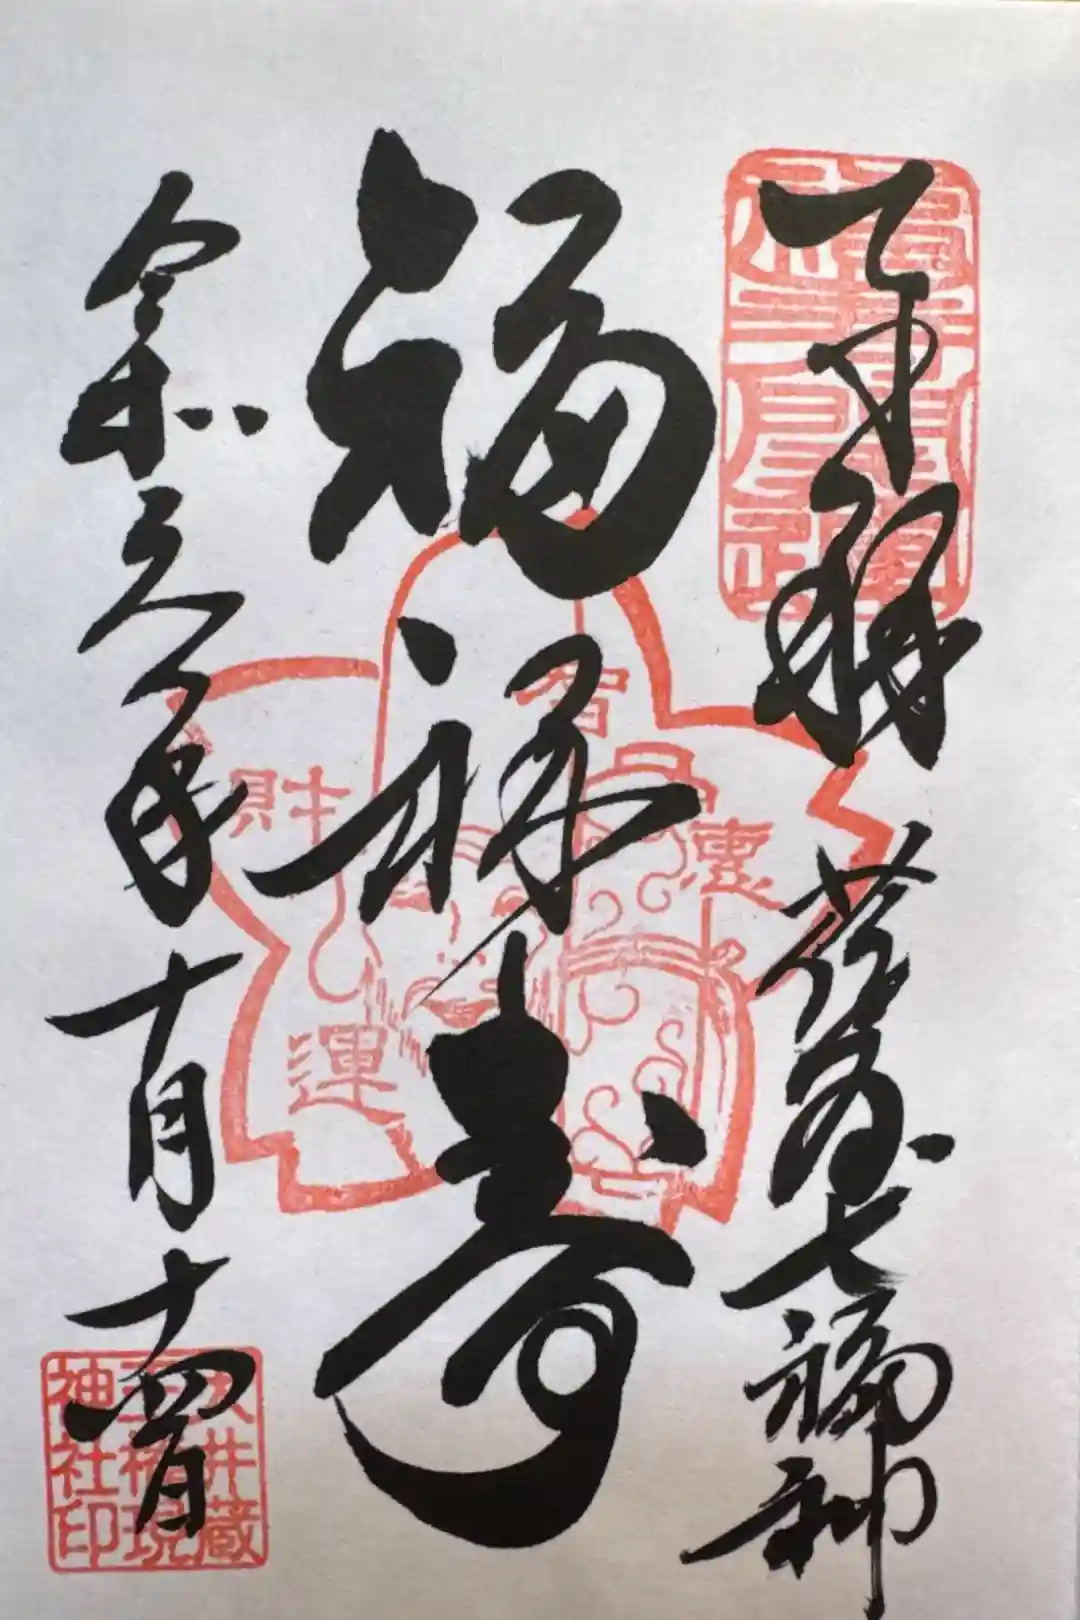 奉拝
荏原七福神
福禄寿
令和
年十月十四日
財
運
大井蔵
王権現
神社印